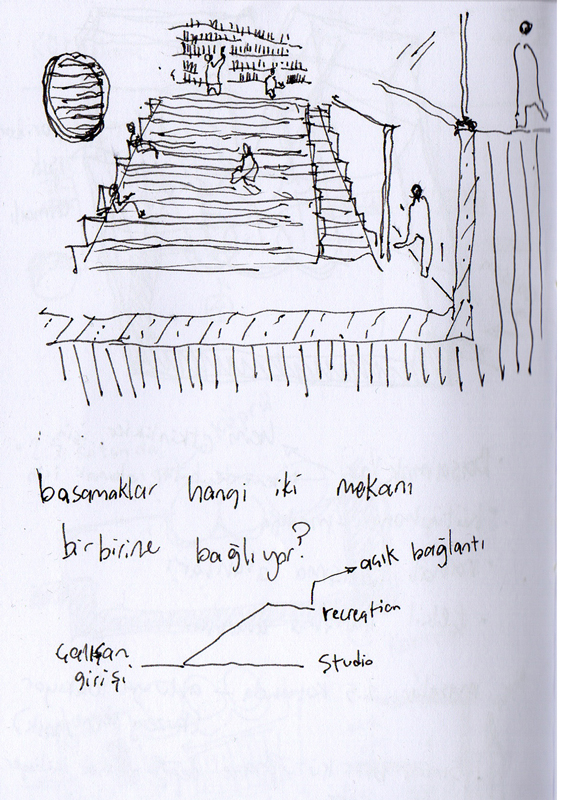 basamaklar hangi iki mekanı
birbirine bağlıyor?
açık bağlantı
recreation
çalışan
girişi
studio